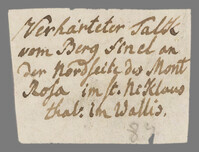 Verhärteter Talk
vom Berg Finel an
der Nordseite des Mont
Rosa im St. Niklaus
thal. im Wallis.